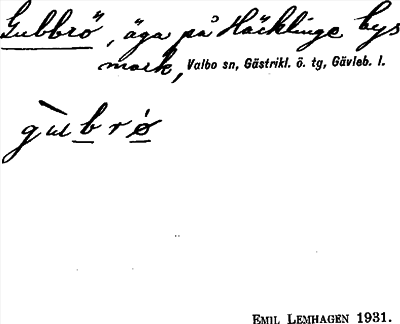 Gubbrö, äga på Häcklinge bys
mark, Valbo sn, Gästrikl. ö. tg, Gävleb. l.
EMIL LEMHAGEN 1931.